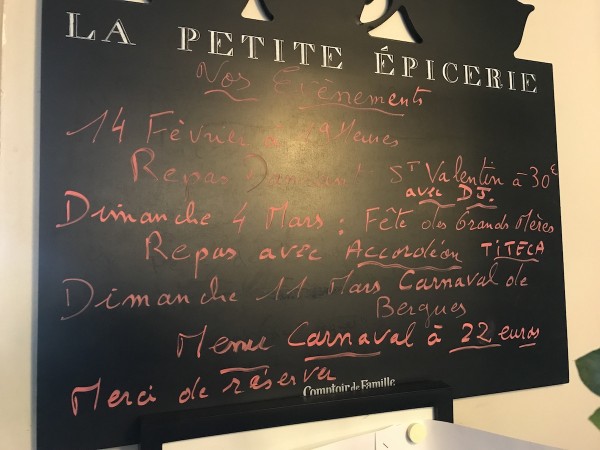 LA PETITE ÉPICERIE
Nos Evènements
14 Fèvrier à 19 Heures
Repas Dansant St Valentin à 30€
avec DJ.
Dimanche 4 Mars : Fête des Grands Mères
Repas avec Accordéon TITECA
Dimanche 11 Mars Carnaval de
Bergues
Menu Carnaval à 22 euros
Merci de réserver
Comptoir de Famille